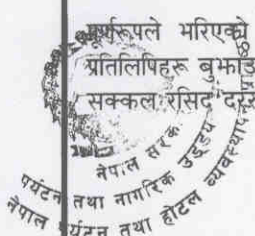 पूर्णरूपले भरिएको
प्रतिलिपिहरू बुझाउ
सक्कल रसिद दस्त
नेपाल सरकार
पर्यटन तथा नागरिक उड्डय
नेपाल पर्यटन तथा होटल व्यवस्थाप